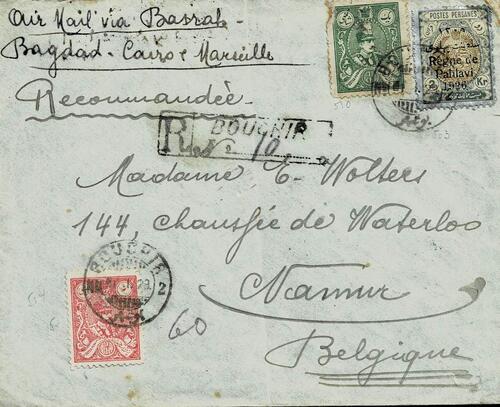 Air Mail via Basrah-
Bagdad - Cairo & Marseille
Recommandée
POSTES PERSANES
Règne de
Pahlavi
1926
2 Kr
R BOUCHIR
No 10
Madame E. Wolters
144, chaussée de Waterloo
Namur
Belgique
BOUCHIR
2
60